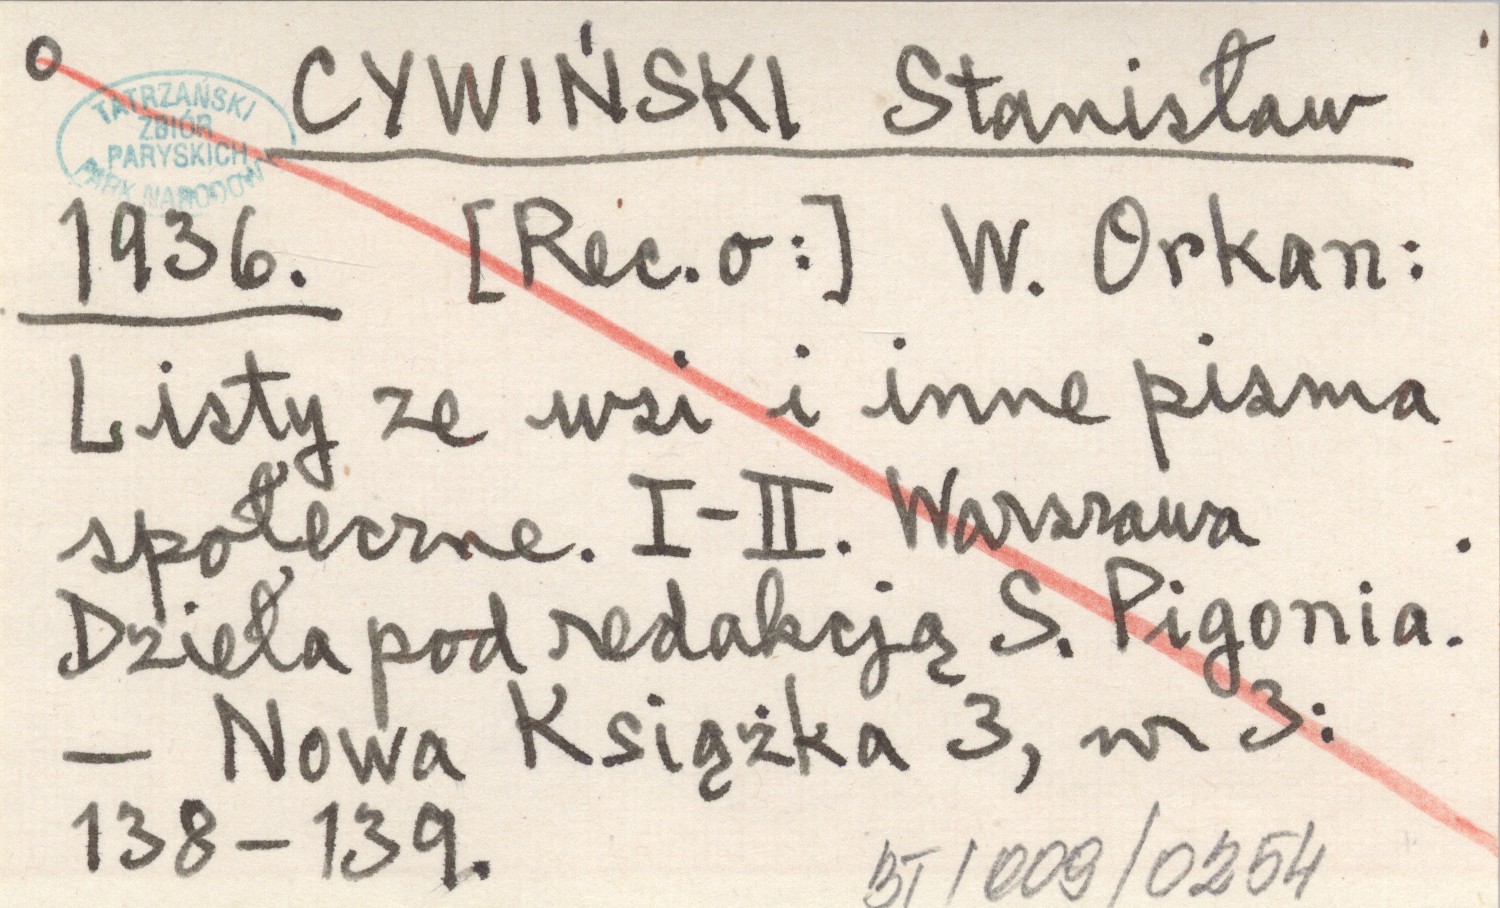 o CYWIŃSKI Stanisław
TATRZAŃSKI
ZBIÓR
PARYSKICH
PARK NARODOWY
1936. [Rec. o:] W. Orkan:
Listy ze wsi i inne pisma
społeczne. I-II. Warszawa .
Dzieła pod redakcją S. Pigonia.
— Nowa Książka 3, nr 3:
138-139.
BT/009/0254